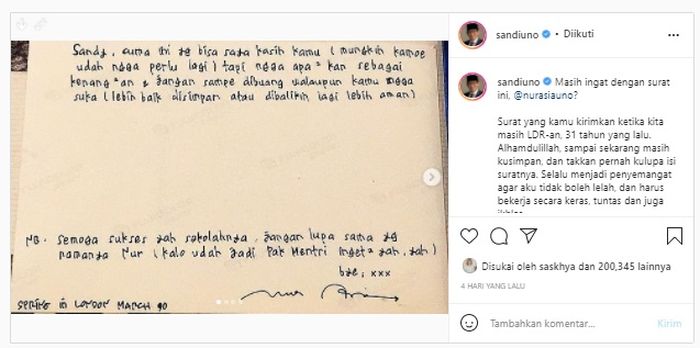 Sandy, cuma ini yg bisa saya kasih kamu (mungkin kamoe
udah ngga perlu lagi) tapi ngga apa² kan sebagai
kenang²an & jangan sampe dibuang walaupun kamu ngga
suka (lebih baik disimpan atau dibalikin lagi lebih aman)
NB. Semoga sukses yah sekolahnya, jangan lupa sama yg
namanya Nur (kalo udah jadi Pak Mentri inget² yah, yah)
bye, xxx
SPRING in LONDON MARCH 90
sandiuno • Diikuti
sandiuno Masih ingat dengan surat
ini, @nurasiauno?
Surat yang kamu kirimkan ketika kita
masih LDR-an, 31 tahun yang lalu.
Alhamdulillah, sampai sekarang masih
kusimpan, dan takkan pernah kulupa isi
suratnya. Selalu menjadi penyemangat
agar aku tidak boleh lelah, dan harus
bekerja secara keras, tuntas dan juga
Disukai oleh saskhya dan 200,345 lainnya
4 HARI YANG LALU
Tambahkan komentar...
Kirim